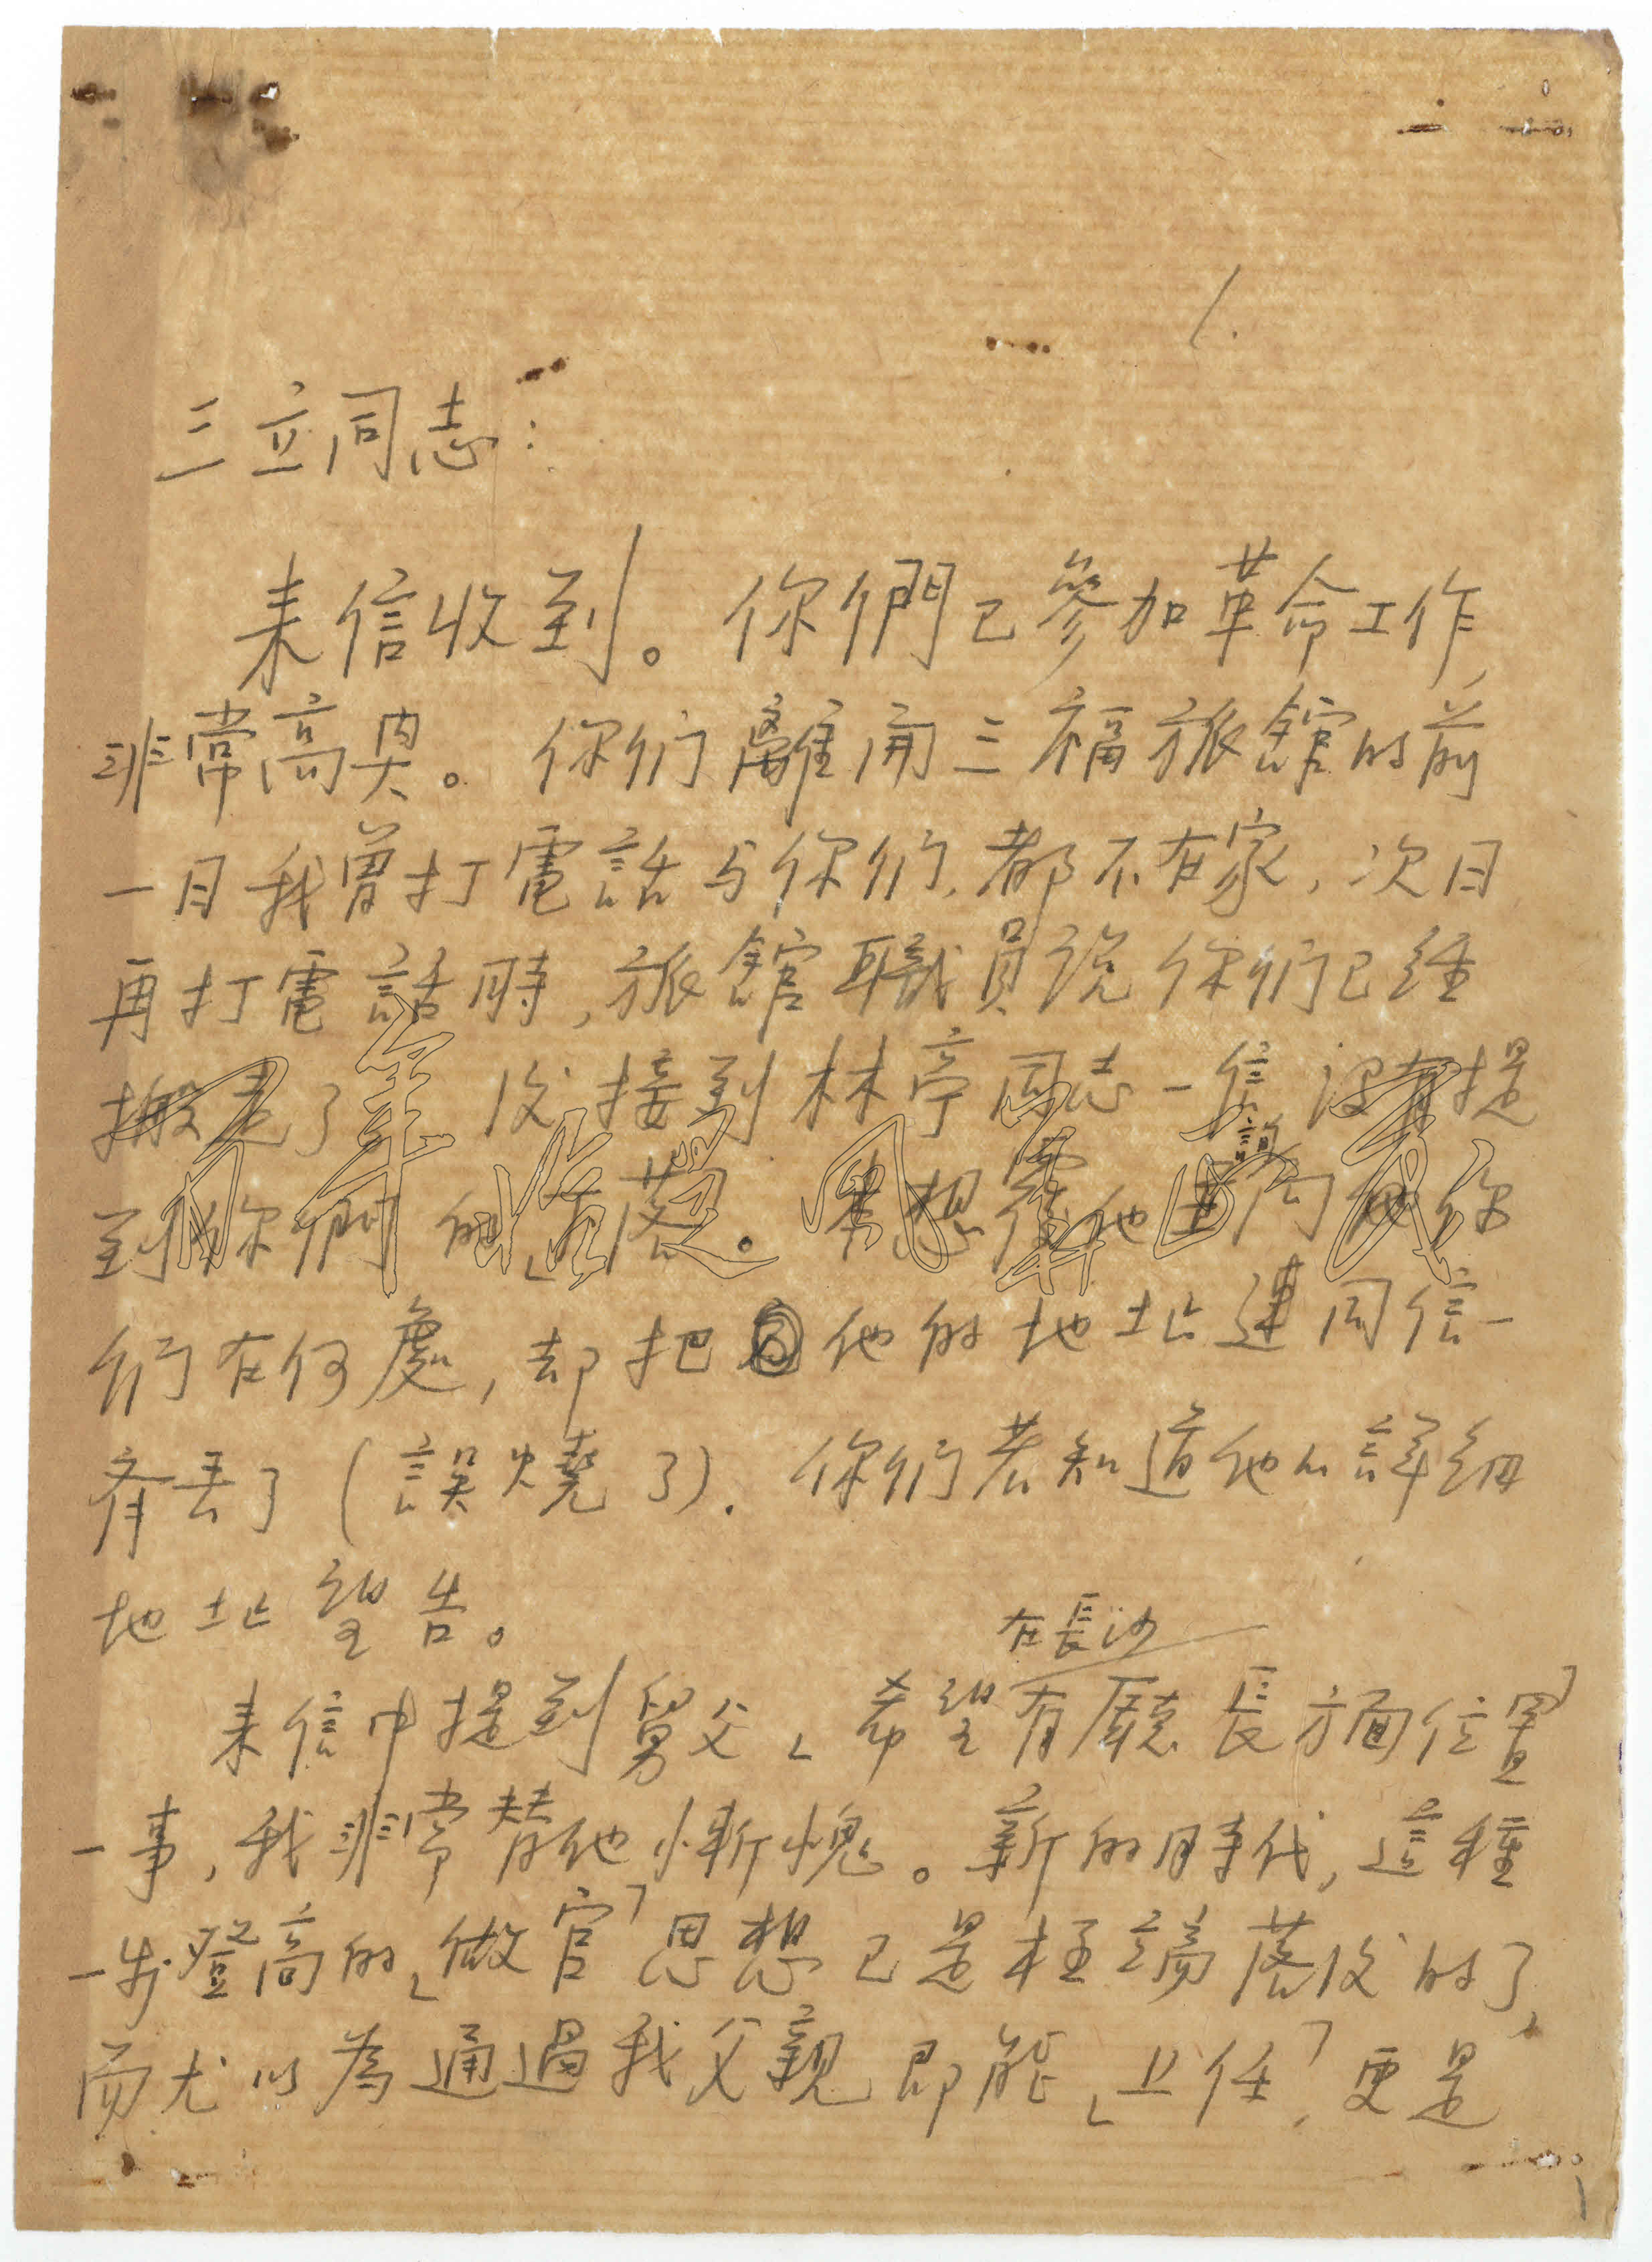 1.
三立同志：
来信收到。你們已參加革命工作，
非常高興。你们離開三福旅館的前
一日我曾打電話与你们，都不在家，次日
再打電話時，旅館職員说你们已经
搬走了。後接到林亭同志一信没有提
到你們的「下落。本想復他並詢他你
们在何處，却把他的地址連同信一
齊丢了（誤燒了）．你们若知道他的詳細
地址望告。
在長沙
来信中提到舅父「希望有廳長方面位置」
一事，我非常替他慚愧。新的時代，這種
一步登高的「做官」思想已是極端落後的了，
而尤以為通過我父親即能「上任」，更是